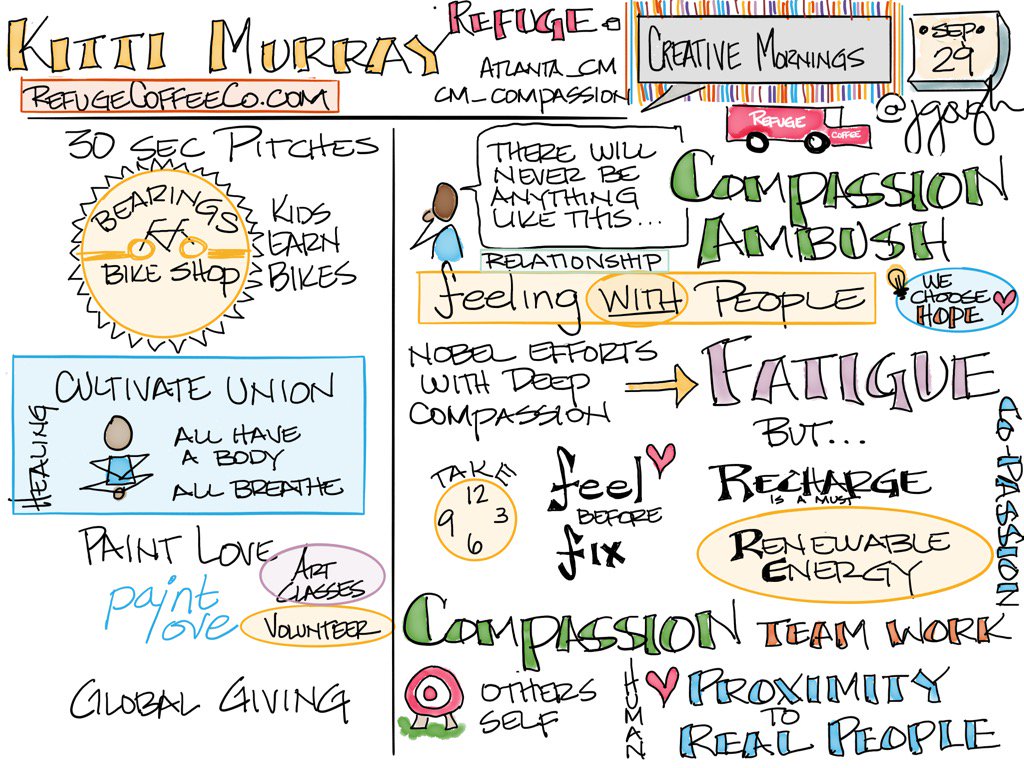 KITTI MURRAY
REFUGE.
ATLANTA_CM
CM_COMPASSION
REFUGECOFFEECO.COM
CREATIVE MORNINGS
•SEP•
29
@jgough
REFUGE
COFFEE
30 SEC PITCHES
BEARINGS
BIKE SHOP
KIDS
EARN
BIKES
CULTIVATE UNION
HEALING
ALL HAVE
A BODY
ALL BREATHE
PAINT LOVE
paint
love
ART
CLASSES
VOLUNTEER
GLOBAL GIVING
THERE WILL
NEVER BE
ANYTHING
LIKE THIS...
COMPASSION
AMBUSH
RELATIONSHIP
feeling WITH PEOPLE
WE
CHOOSE
HOPE
NOBEL EFFORTS
WITH DEEP
COMPASSION
FATIGUE
BUT...
TAKE
12
9 3
6
feel
BEFORE
fix
RECHARGE
IS A MUST
RENEWABLE
ENERGY
CO-PASSION
COMPASSION TEAM WORK
OTHERS
SELF
HUMAN
PROXIMITY
TO
REAL PEOPLE